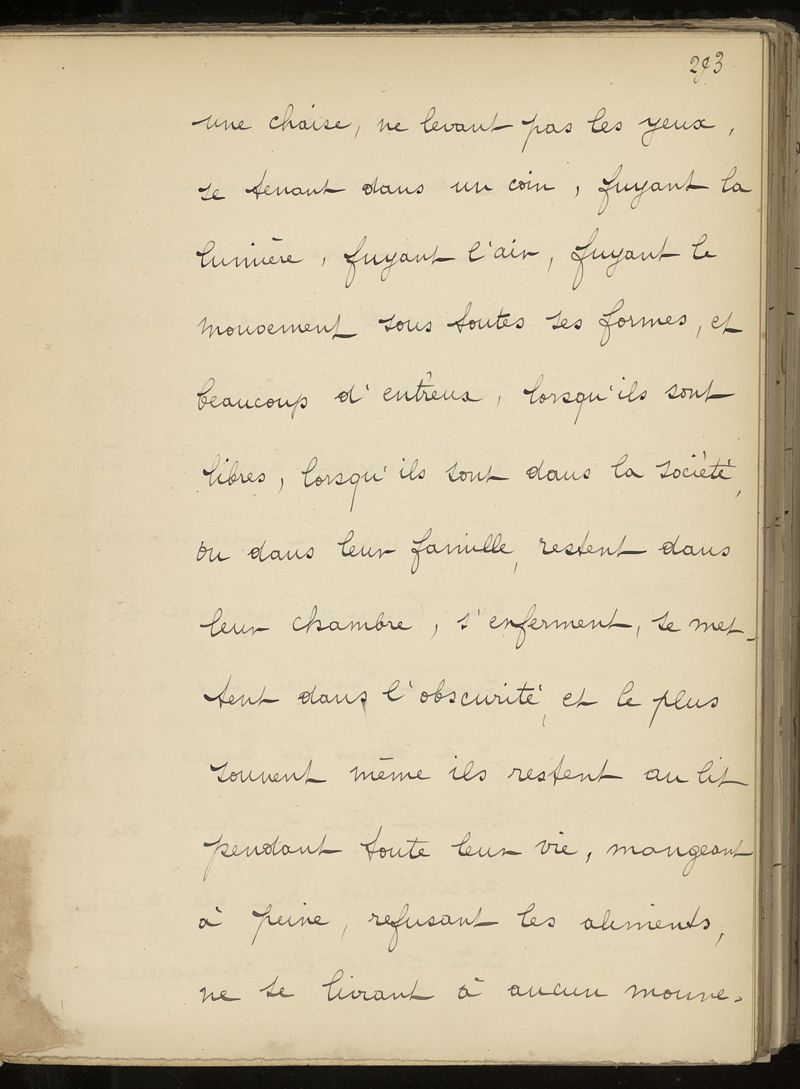 293
une chaise, ne levant pas les yeux,
se tenant dans un coin, fuyant la
lumière, fuyant l'air, fuyant le
mouvement sous toutes ses formes, et
beaucoup d'entr'eux, lorsqu'ils sont
libres, lorsqu'ils sont dans la société,
ou dans leur famille, restent dans
leur chambre, s'enferment, se met-
tent dans l'obscurité, et le plus
souvent même ils restent au lit
pendant toute leur vie, mangeant
à peine, refusant les aliments,
ne se livrant à aucun mouve-